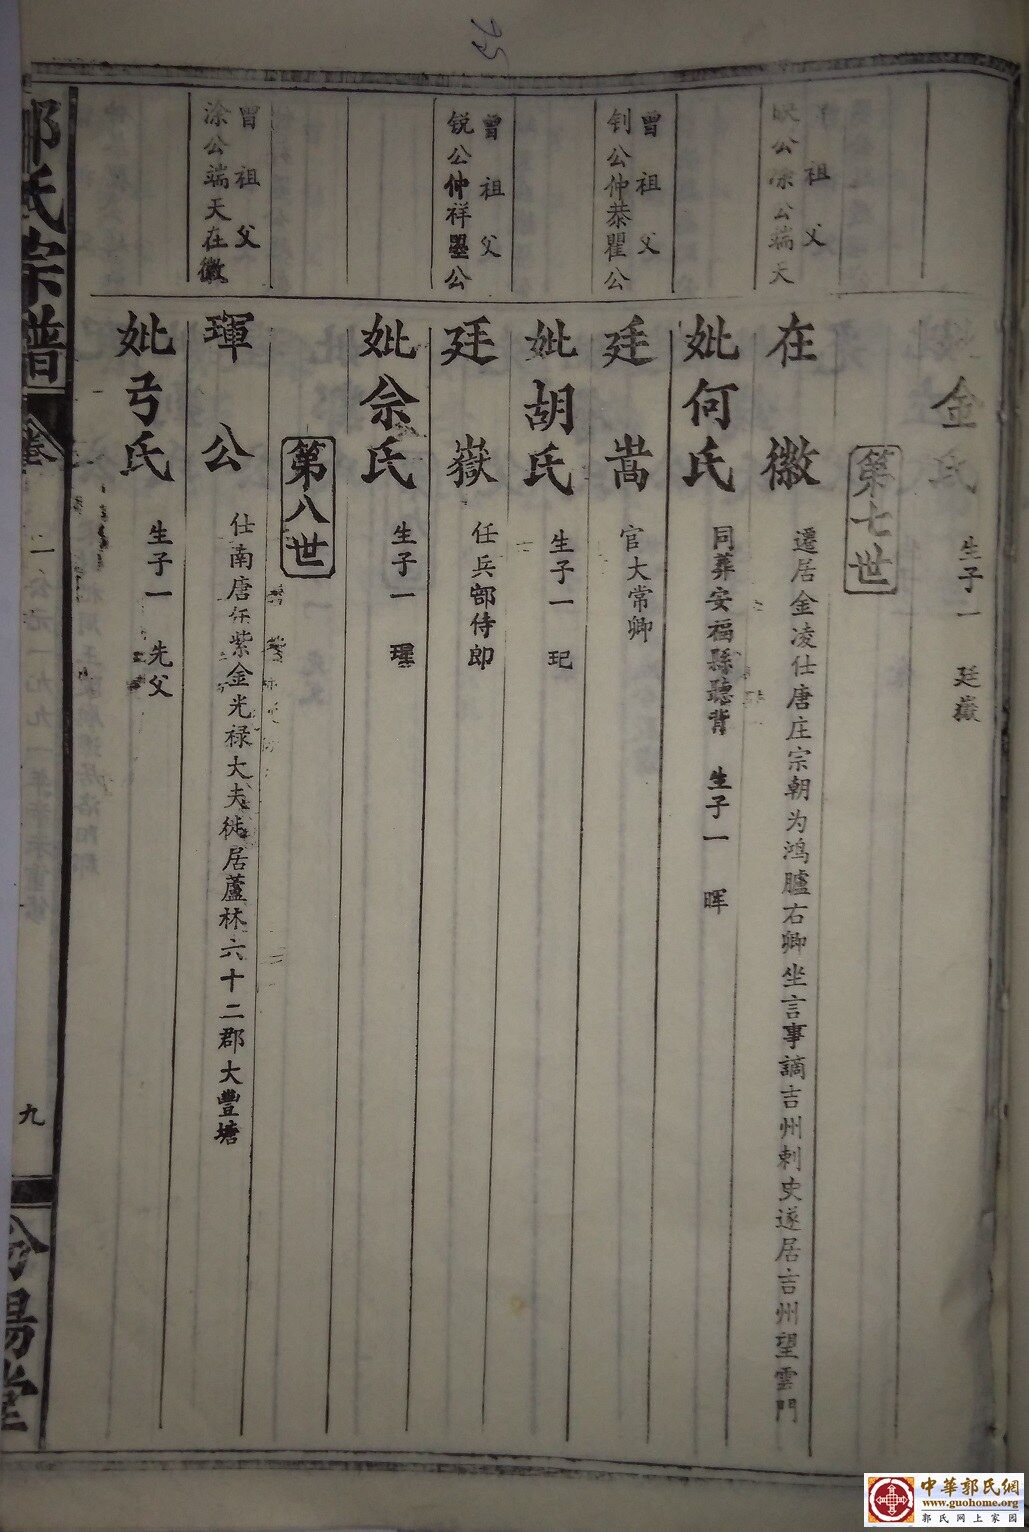 金氏 生子一 廷嶽
第七世
曾祖父
映公涂公端天
在徽 遷居金凌仕唐庄宗朝为鴻臚右卿坐言事謫吉州刺史遂居吉州望雲門
妣何氏 同葬安福縣聽背 生子一 晖
曾祖父
钊公仲恭瞿公
廷嵩 官大常卿
妣胡氏 生子一 玘
曾祖父
锐公仲祥墨公
廷嶽 任兵部侍郎
妣佘氏 生子一 瑆
第八世
曾祖父
涂公端天在徽
琿公 仕南唐任紫金光禄大夫徙居蘆林六十二郡大豐塘
妣弓氏 生子一 先父
郭氏宗譜
卷
一
公元一九九一年辛未重修
九
汾陽堂
75
中華郭氏網
www.guohome.org
郭氏网上家园